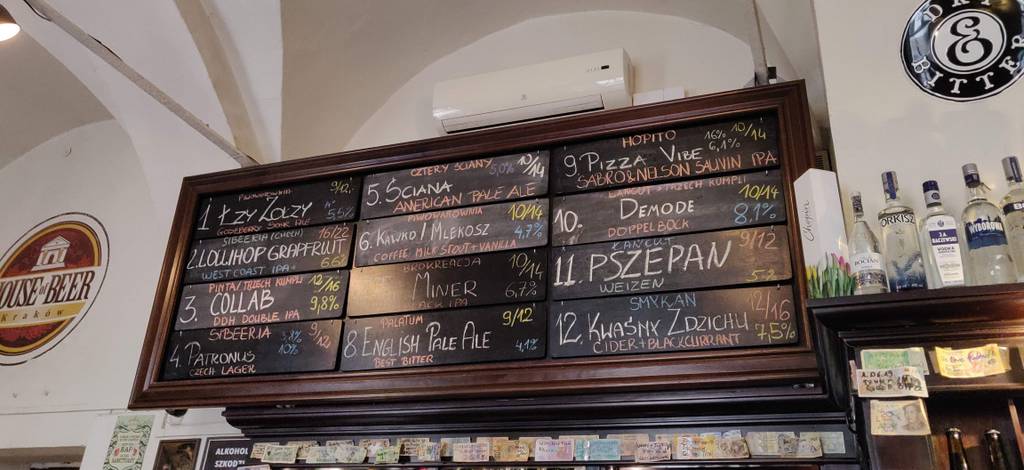 9/12
1 Łzy Zołzy 5,5%
SIBEERIA (CZECH) 16/22
2. LOLLIHOP GRAPFRUIT
WEST COAST IPA
PINTA/TRZECH KUMPLI 12/16
3. COLLAB 9,8%
DDH DOUBLE IPA
SIBEERIA 9/12
4. PATRONUS 10%
CZECH LAGER
CZTERY ŚCIANY 5,0% 10/14
5. ŚCIANA
AMERICAN PALE ALE
10/14
6. KAWKO I MLEKOSZ 4,7%
COFFEE MILK STOUT + VANILLA
BROKREACJA 10/14
MINER 6,7%
PALATUM 9/12
8. ENGLISH PALE ALE 4,1%
BEST BITTER
HOPITO 16% 10/14
9. PIZZA VIBE 6,1%
SABRO & NELSON SAUVIN IPA
10/14
10. DEMODE 8,1%
DOPPELBOCK
ŁAŃCUT 9/12
11. PSZEPAN
WEIZEN 5,2
SMYKAN 12/16
12. KWAŚNY ZDZICHU 7,5%
CIDER + BLACKCURRANT
HOUSE of BEER
Kraków
BITTER
Chopin
ORKISZ
J.A. BACZEWSKI
VODKA
WYBOROWA
ALKOHOL
SZKODZI